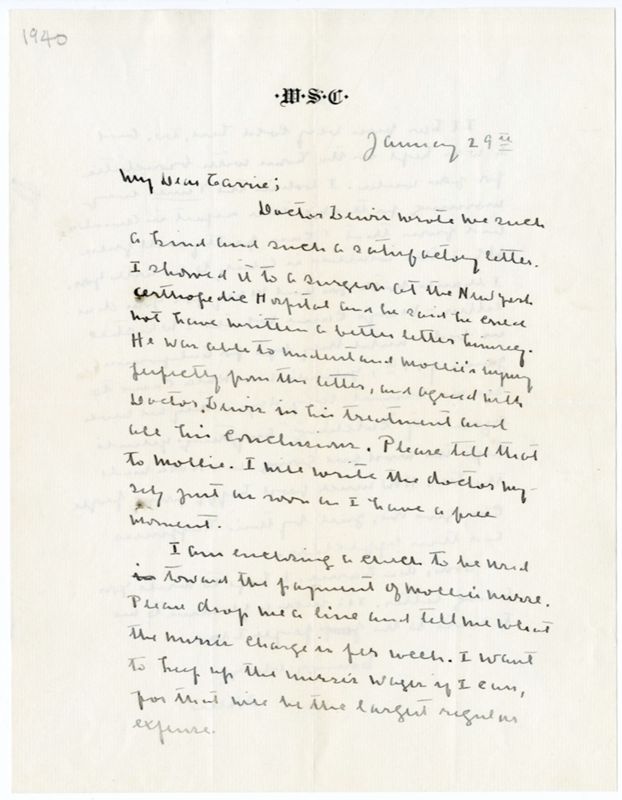 1940
·W·S·C·
January 29th
My Dear Carrie;
Doctor Denu wrote me such
a kind and such a satisfactory letter.
I showed it to a surgeon at the New York
Orthopedic Hospital and he said he could
not have written a better letter himself.
He was able to understand Mollie's injury
perfectly from this letter, and agreed with
Doctor in his treatment and
all his conclusions. Please tell that
to Mollie. I will write the doctor my-
self just as soon as I have a free
moment.
I am enclosing a check to be used
in toward the payment of Mollie's nurse.
Please drop me a line and tell me what
the nurse's charge is per week. I want
to keep up the nurse's wages if I can,
for that will be the largest regular
expense.